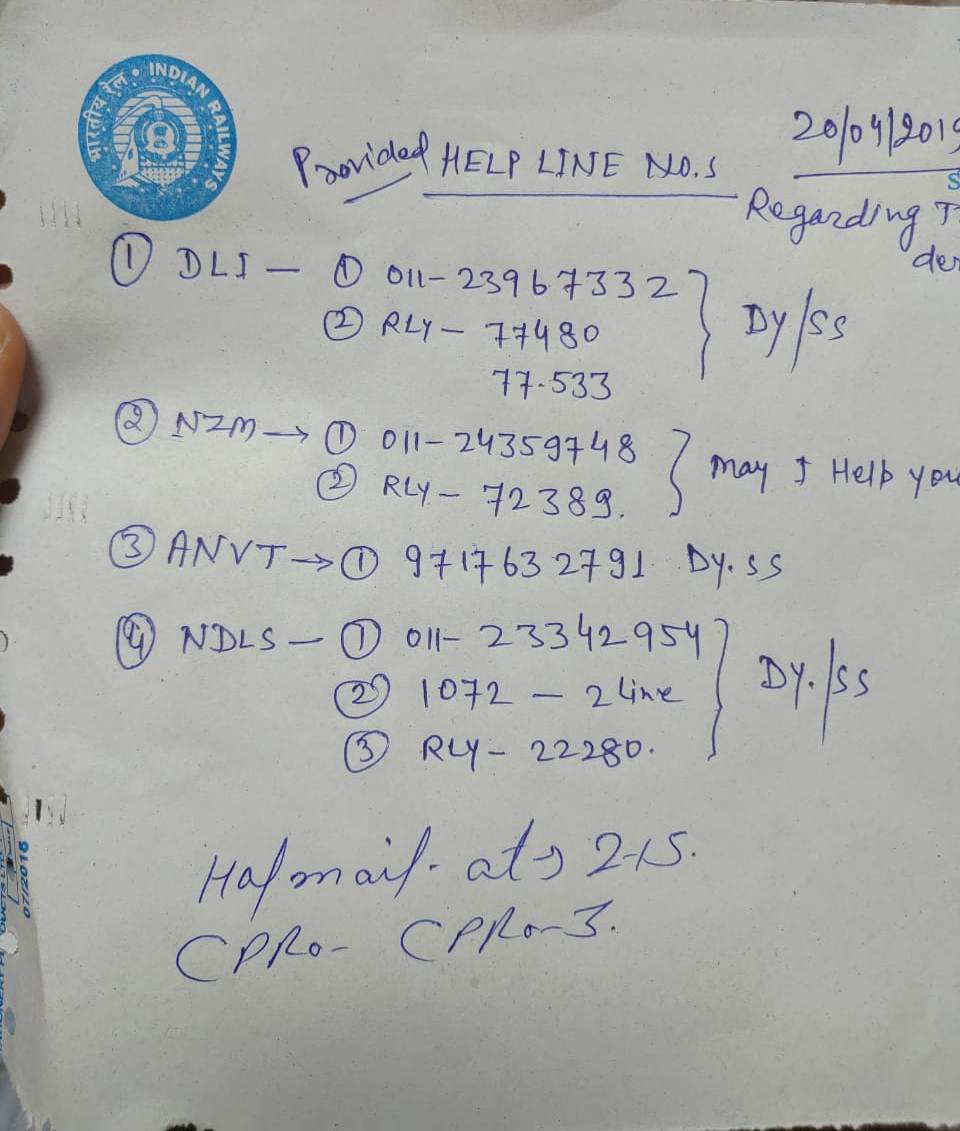 भारतीय रेल • INDIAN RAILWAYS
20/04/2019
Provided HELP LINE NO.S
Regarding T
der
① DLI — ① 011-23967332
② RLY - 77480
77-533
Dy/SS
② NZM → ① 011-24359748
② RLY - 72389.
May I Help you
③ ANVT → ① 9717632791 Dy.SS
④ NDLS — ① 011-23342954
② 1072 — 2 line
③ RLY - 22280.
Dy./SS
at 2-15.
CPRO- CPRO-3.
07/2016